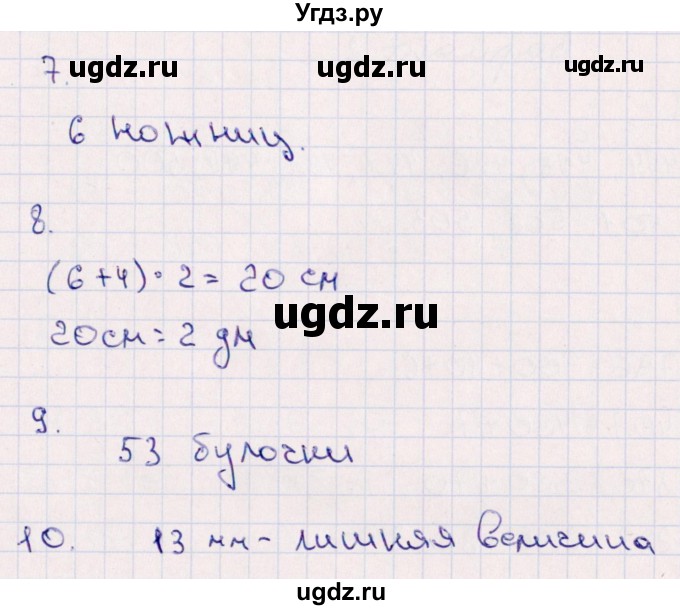 Угдз.ру
7.
ugdz.ru ugdz.ru ugdz.ru
6 ножниц.
8.
(6+4)·2=20 см
ugdz.ru
20см=2 дм
9.
53 булочки
ugdz.ru
10. 13 мм- лишняя величина
ugdz.ru